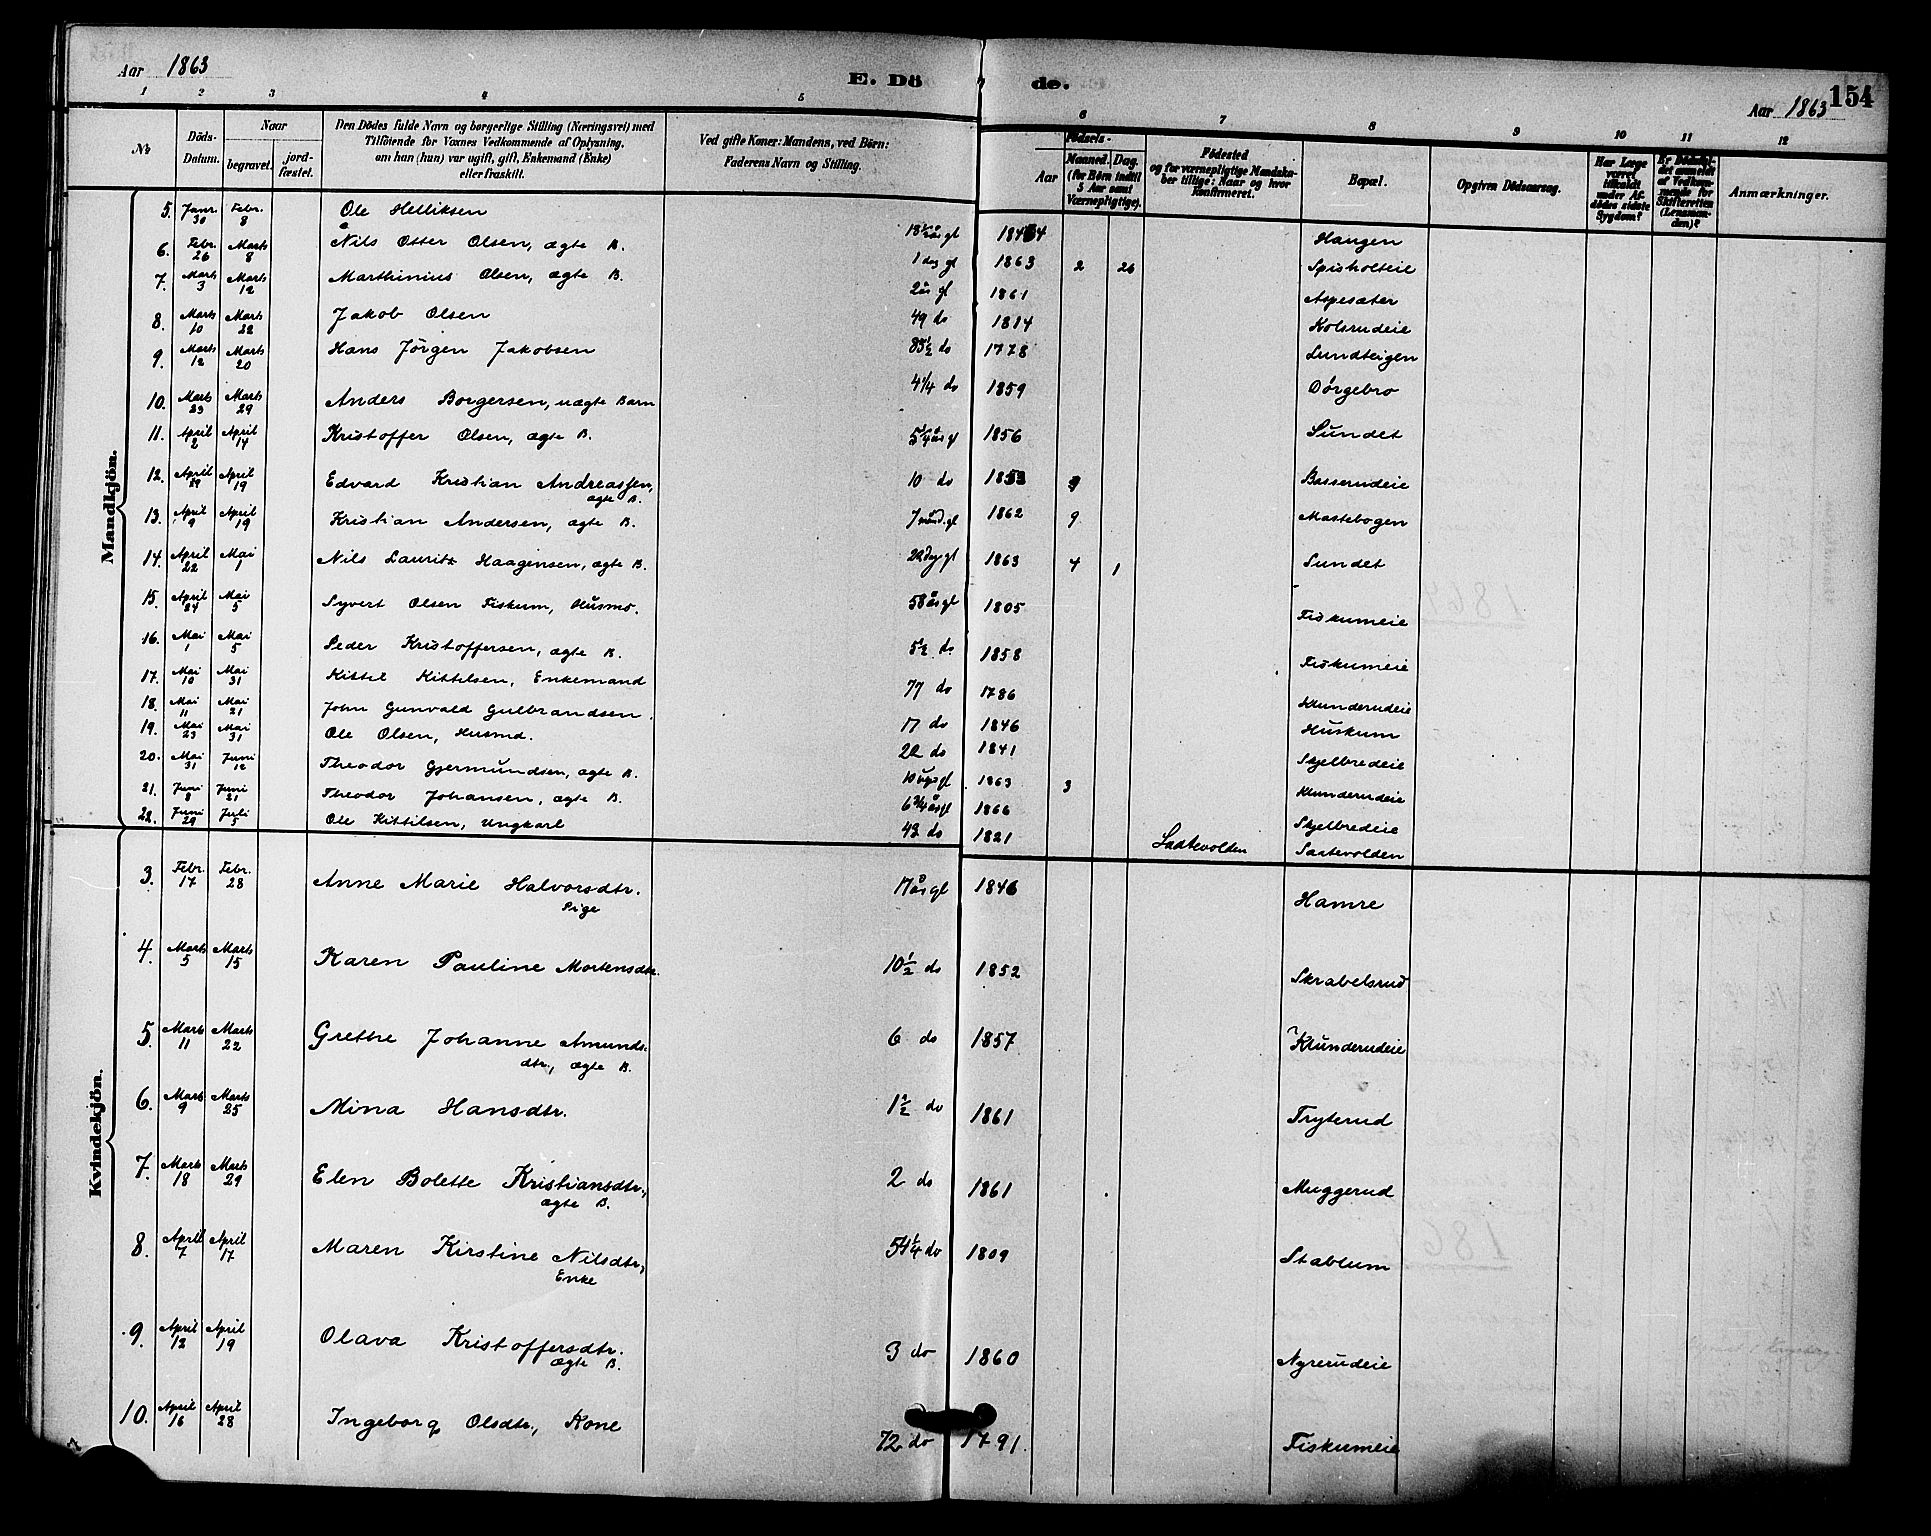 Aar 1863
E. Dö
de.
Aar 1863
154
1 2 3 4 5 6 7 8 9 10 11 12
№
Döds-
Datum.
Naar
begravet.
jord-
fæstet.
Den Dödes fulde Navn og borgerlige Stilling (Næringsvei) med
Tilföiende for Voxnes Vedkommende af Oplysning,
om han (hun) var ugift, gift, Enkemand (Enke)
eller fraskilt.
Ved gifte Koner: Mandens, ved Börn:
Faderens Navn og Stilling.
Födsels-
Aar
Maaned. Dag.
(for Börn indtil
5 Aar samt
Værnepligtige).
Födested
og for værnepligtige Mandska-
ber tillige: Naar og hvor
konfirmeret.
Bopæl.
Opgiven Dödsaarsag.
Har Læge
været
tilkaldt
under Af-
dödes sidste
Sygdom?
Er Dödsfal-
det anmeldt
af Vedkom-
mende for
Skifteretten
(Lensman-
den)?
Anmærkninger.
Mandkjön.
5. Janr. 30 Febr. 8 Ole Helliksen 18½ år gl 1844 Haugen
6. Febr. 26 Marts 8 Nils Otter Olsen, ægte B. 1 dag gl 1863 2 26 Spisholteie
7. Marts 3 Marts 12 Marthinius Olsen, ægte B. 2 år gl 1861 Aspesæter
8. Marts 10 Marts 22 Jakob Olsen 49 do 1814 Kolsrudeie
9. Marts 12 Marts 20 Hans Jörgen Jakobsen 85½ do 1778 Lundteigen
10. Marts 23 Marts 29 Anders Borgersen, uægte Barn 4¼ do 1859 Dörgebro
11. April 2 April 14 Kristoffer Olsen, ægte B. 1856 Sundet
12. April April 19 Edvard Kristian Andreassen,
ægte B. 10 do 1853 Basserudeie
13. April 9 April 19 Kristian Andersen, ægte B. 7 månd. gl 1862 9 Mastebogen
14. April 22 Mai 1 Nils Lauritz Haagensen, ægte B. 22 dag gl 1863 4 1 Sundet
15. April 24 Mai 5 Syvert Olsen Fiskum, Husmd. 58 år gl 1805 Fiskumeie
16. Mai 1 Mai 5 Peder Kristoffersen, ægte B. 5½ do 1858 Fiskumeie
17. Mai 10 Mai 31 Kittil Kittilsen, Enkemand 77 do 1786 Klunderudeie
18. Mai 11 Mai 21 John Gunvald Gulbrandsen. 17 do 1846 Huskum
19. Mai 23 Mai 31 Ole Olsen, Husmd. 22 do 1841 Skjelbredeie
20. Mai 31 Juni 12 Theodor Gjermundsen, ægte B. 10 ugr gl 1863 3 Klunderudeie
21. Juni 8 Juni 21 Theodor Johansen, ægte B. 6¾ år gl 1866 Skjelbredeie
22. Juni 29 Juli 5 Ole Kittilsen, Ungkarl 42 do 1821 Saatevolden Saatevolden
Kvindekjön.
3. Febr. 17 Febr. 28 Anne Marie Halvorsdtr.
Pige 17 år gl 1846 Hamre
4. Marts 5 Marts 15 Karen Pauline Mortensdtr. 10½ do 1852 Skrabelsrud
5. Marts 11 Marts 22 Grethe Johanne Amunds-
dtr., ægte B. 6 do 1857 Klunderudeie
6. Marts 9 Marts 25 Mina Hansdtr. 1½ do 1861 Tryterud
7. Marts 18 Marts 29 Elen Bolette Kristiansdtr.,
ægte B. 2 do 1861 Muggerud
8. April 7 April 17 Maren Kirstine Nilsdtr,
Enke 54¼ do 1809 Stablum
9. April 12 April 19 Olava Kristoffersdtr.
ægte B. 3 do 1860 Nyrerudeie
10. April 16 April 28 Ingeborg Olsdtr, Kone 72 do 1791 Fiskumeie